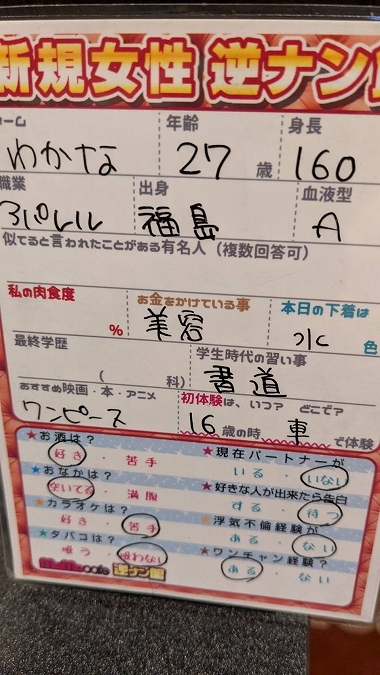 新規女性 逆ナン
ーム 年齢 身長
わかな 27歳 160
職業 出身 血液型
アパレル 福島 A
似てると言われたことがある有名人（複数回答可）
私の肉食度 お金をかけている事 本日の下着は
% 美容 水色
最終学歴 学生時代の習い事
( 科) 書道
おすすめ映画・本・アニメ 初体験は、いつ? どこで?
ワンピース 16歳の時 車で体験
★お酒は? ★現在パートナーが
好き・苦手 いる・いない
★おなかは? ★好きな人が出来たら告白
空いてる・満腹 する・待つ
★カラオケは? ★浮気不倫経験が
好き・苦手 ある・ない
★タバコは? ★ワンチャン経験は?
吸う・吸わない ある・ない
cafe 逆ナン館